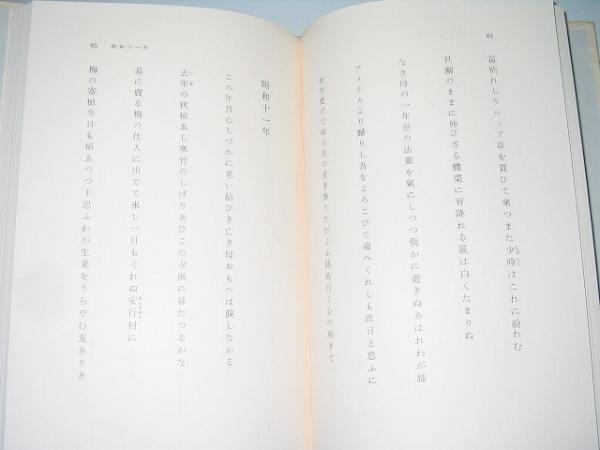 64
霜枯れしウルップ草を買ひて來つまた少時はこれに紛れむ
のままに伸びざる體菜に宵降れる霰は白くたまりぬ
なき母の一年忌の法要を氣にしつつ俄かに逝きぬあはれわが姉
アメリカより歸りし吾をよろこびて へくれしも昨日と思ふに
更けて の花の甘き香りただよふ路地行く心の和ぎて
昭和十一年
この年月心しづかに老い給ひき亡き母おもへば淚しながる
去年の秋植ゑし寒竹のしげりあひこの夕風に音たつるかな
暮に賣る梅の仕入に出でて來し一日もくれぬ安行村に
梅の寄植今日も植ゑつつ下思ふわが生業をうらやむ友ありき
65 昭和十一年